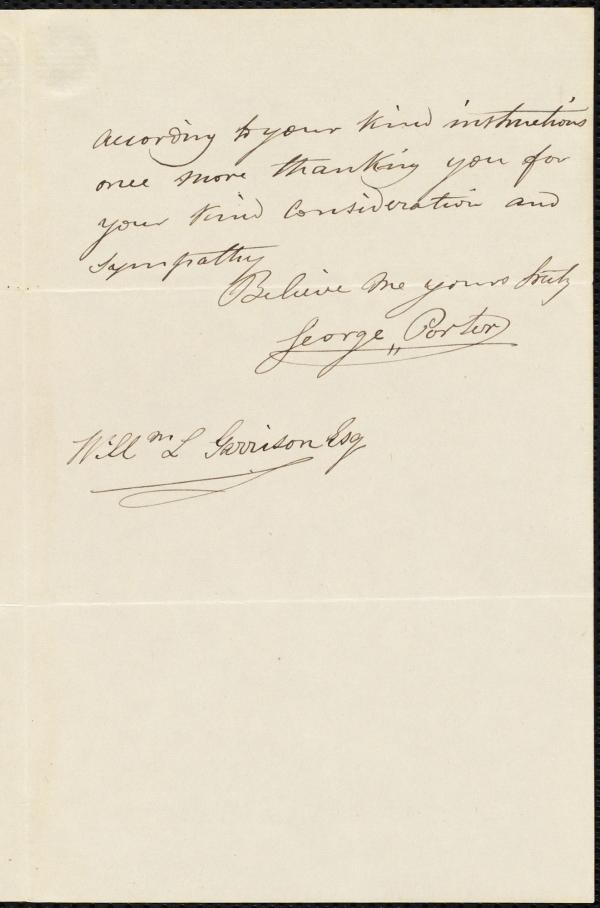 according to your kind instructions
once more thanking you for
your kind consideration and
sympathy
Believe me yours truly
George Porter
Will m L Garrison Esq